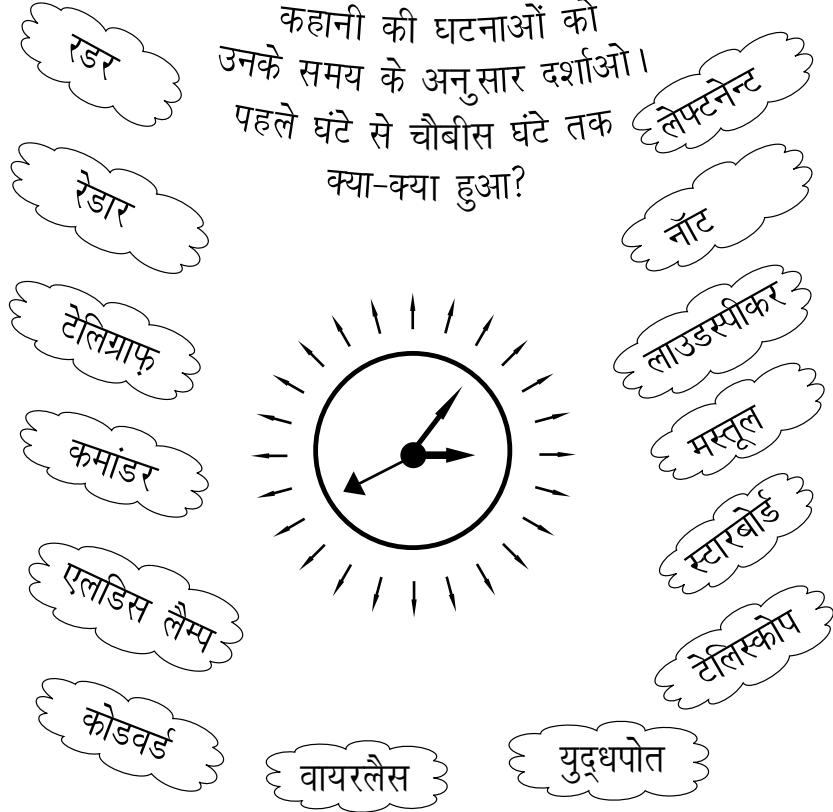 कहानी की घटनाओं को
उनके समय के अनुसार दर्शाओ।
पहले घंटे से चौबीस घंटे तक
क्या-क्या हुआ?
रडर
रेडार
टेलिग्राफ़
कमांडर
एलडिस लैम्प
कोडवर्ड
वायरलैस
युद्धपोत
लेफ्टनेन्ट
नॉट
लाउडस्पीकर
मस्तूल
स्टारबोर्ड
टेलिस्कोप